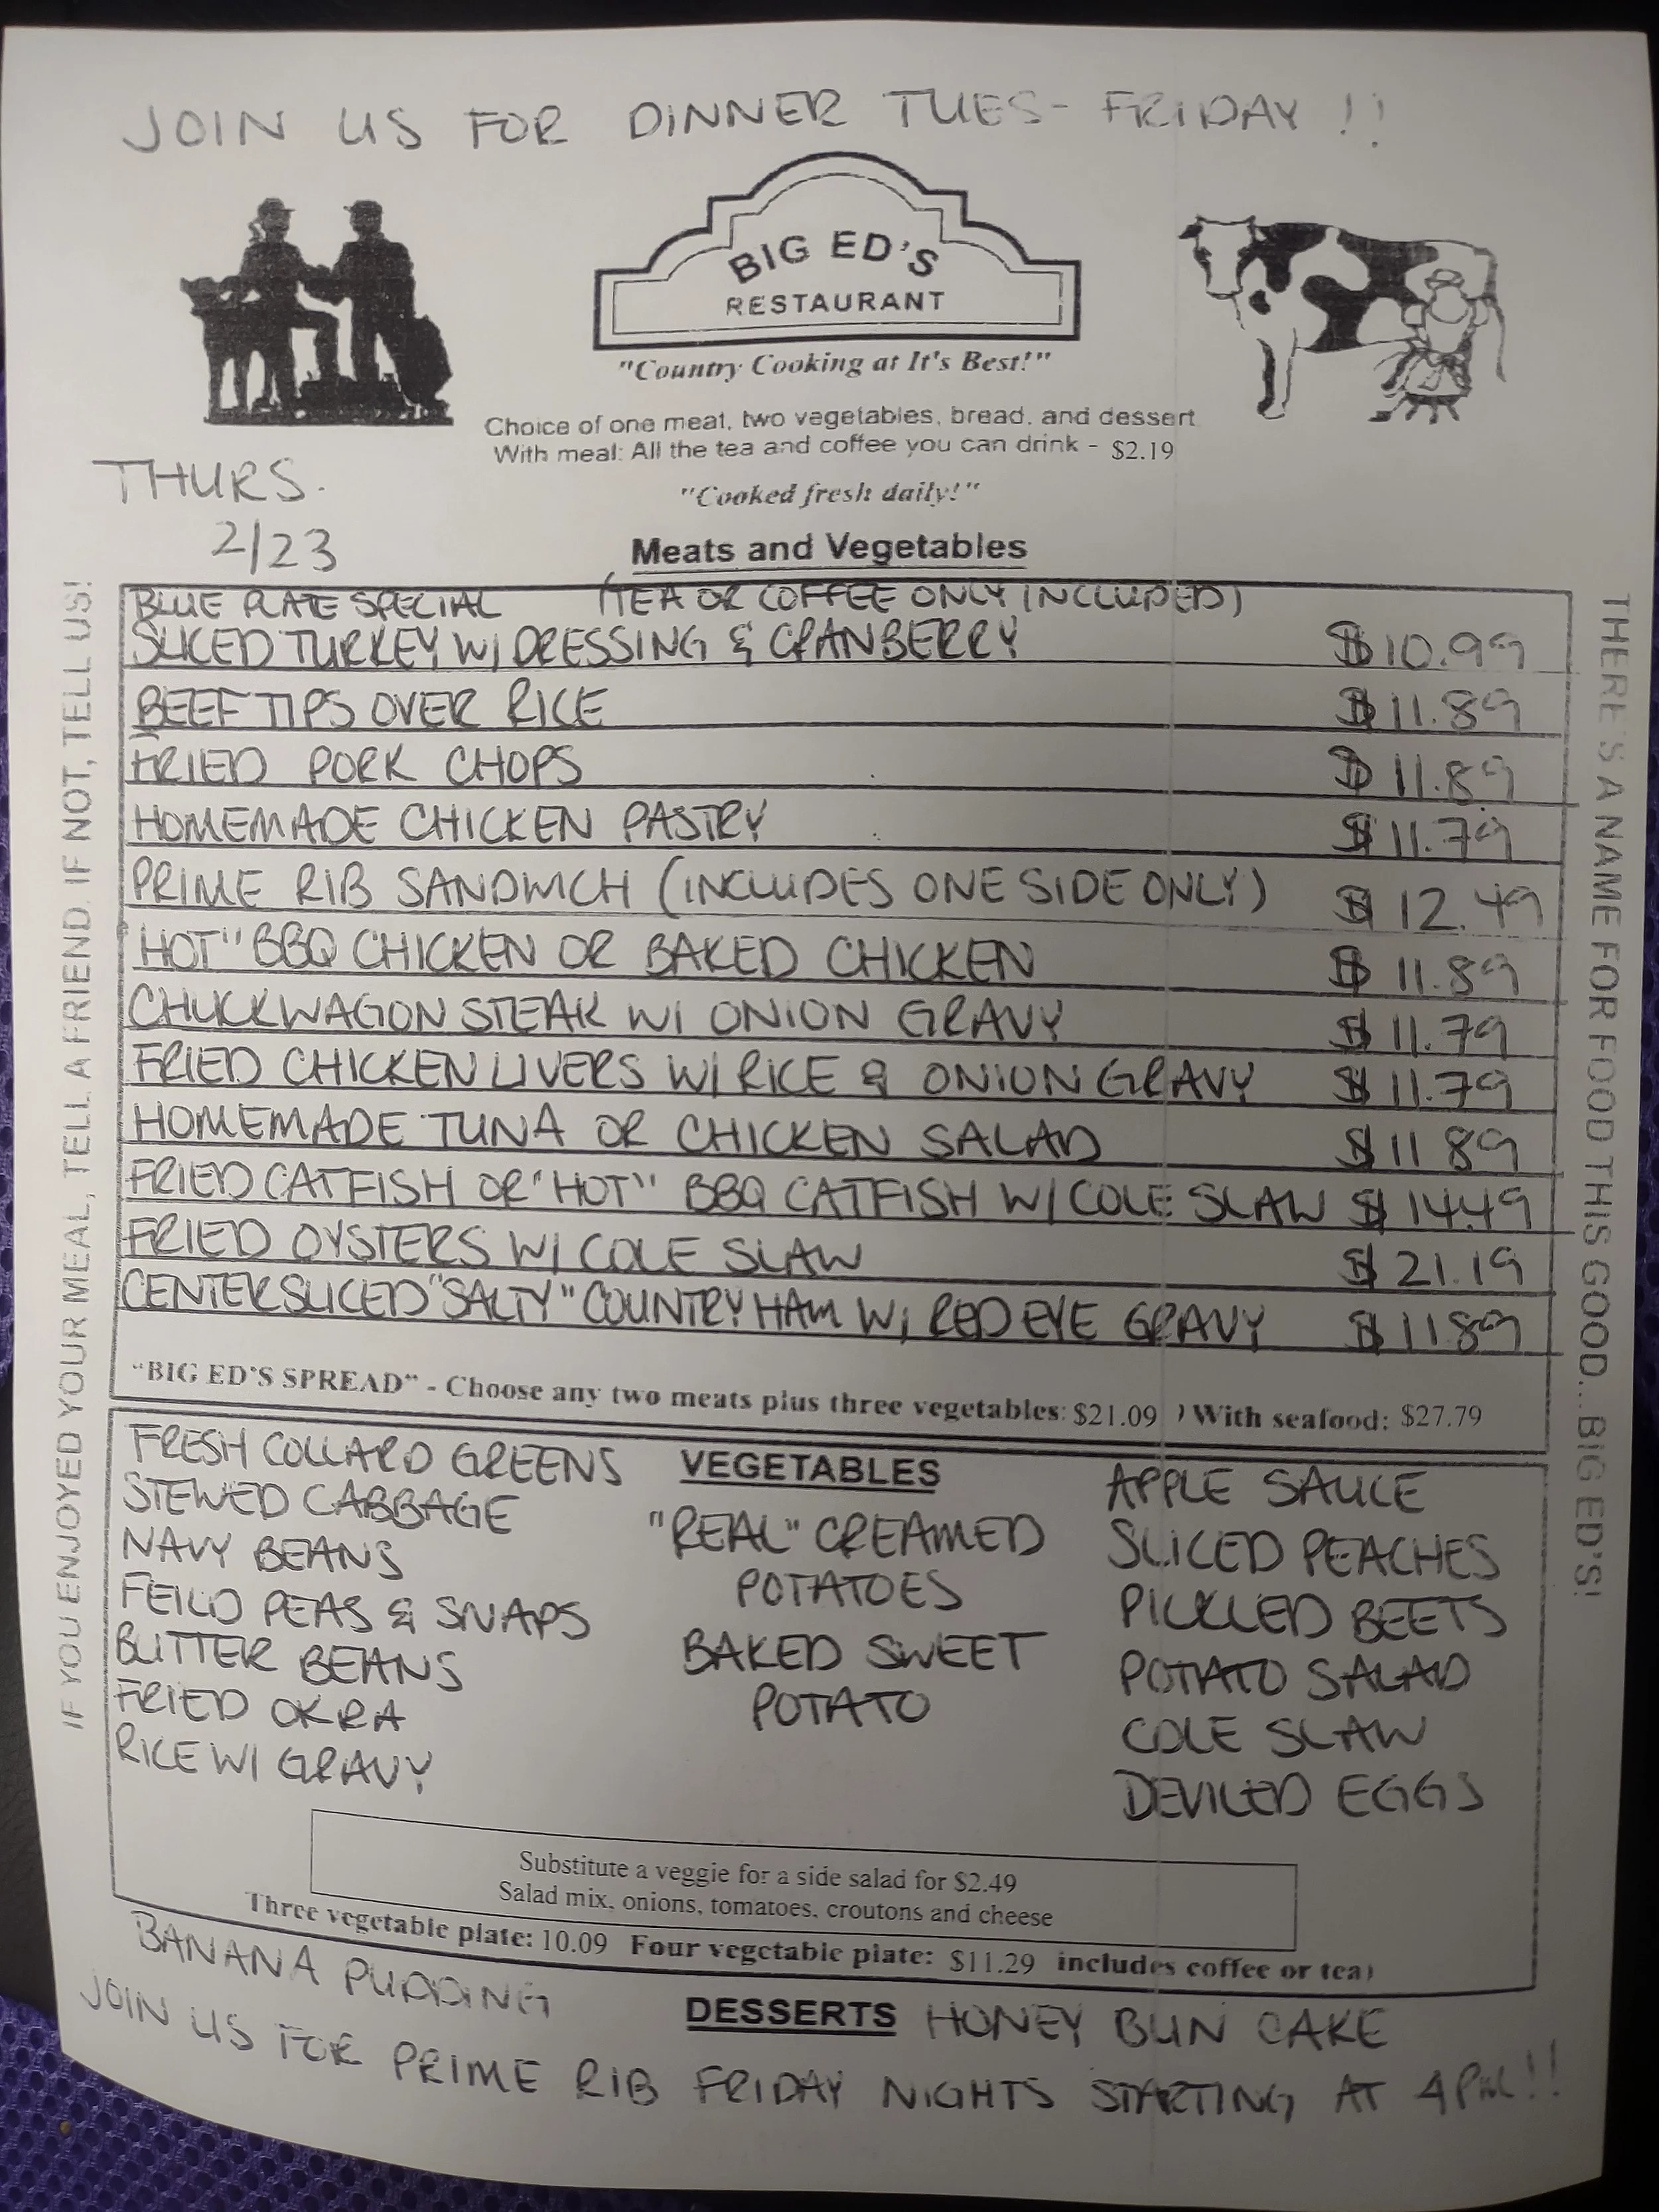 JOIN US FOR DINNER TUES- FRIDAY !!
BIG ED'S
RESTAURANT
"Country Cooking at It's Best!"
Choice of one meat, two vegetables, bread, and dessert
With meal: All the tea and coffee you can drink - $2.19
THURS.
2/23
"Cooked fresh daily!"
Meats and Vegetables
BLUE PLATE SPECIAL (TEA OR COFFEE ONLY INCLUDED)
SLICED TURKEY W/ DRESSING & CRANBERRY $10.99
BEEF TIPS OVER RICE $11.89
FRIED PORK CHOPS $11.89
HOMEMADE CHICKEN PASTRY $11.79
PRIME RIB SANDWICH (INCLUDES ONE SIDE ONLY) $12.49
"HOT" BBQ CHICKEN OR BAKED CHICKEN $11.89
CHUCKWAGON STEAK W/ ONION GRAVY $11.79
FRIED CHICKEN LIVERS W/ RICE & ONION GRAVY $11.79
HOMEMADE TUNA OR CHICKEN SALAD $11.89
FRIED CATFISH OR "HOT" BBQ CATFISH W/ COLE SLAW $14.49
FRIED OYSTERS W/ COLE SLAW $21.19
CENTER SLICED "SALTY" COUNTRY HAM W/ RED EYE GRAVY $11.89
"BIG ED'S SPREAD" - Choose any two meats plus three vegetables: $21.09 ) With seafood: $27.79
VEGETABLES
FRESH COLLARD GREENS
STEWED CABBAGE
NAVY BEANS
FEILD PEAS & SNAPS
BUTTER BEANS
FRIED OKRA
RICE W/ GRAVY
"REAL" CREAMED
POTATOES
BAKED SWEET
POTATO
APPLE SAUCE
SLICED PEACHES
PICKLED BEETS
POTATO SALAD
COLE SLAW
DEVILED EGGS
Substitute a veggie for a side salad for $2.49
Salad mix, onions, tomatoes, croutons and cheese
Three vegetable plate: 10.09 Four vegetable plate: $11.29 includes coffee or tea)
BANANA PUDDING DESSERTS HONEY BUN CAKE
JOIN US FOR PRIME RIB FRIDAY NIGHTS STARTING AT 4PM!!
IF YOU ENJOYED YOUR MEAL, TELL A FRIEND. IF NOT, TELL US!
THERE'S A NAME FOR FOOD THIS GOOD...BIG ED'S!